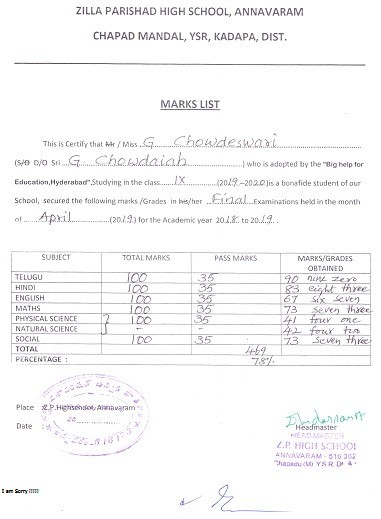 ZILLA PARISHAD HIGH SCHOOL, ANNAVARAM
CHAPAD MANDAL, YSR, KADAPA, DIST.
MARKS LIST
This is Certify that Mr / Miss G Chowdeswari
(S/O D/O Sri G Chowdaiah) who is adopted by the "Big help for
Education,Hyderabad",Studying in the class IX (2019-2020) is a bonafide student of our
School, secured the following marks /Grades in his/her Final Examinations held in the month
of April (2019) for the Academic year 2018 to 2019.
SUBJECT TOTAL MARKS PASS MARKS MARKS/GRADES OBTAINED
TELUGU 100 35 90 nine zero
HINDI 100 35 83 eight three
ENGLISH 100 35 67 six seven
MATHS 100 35 73 seven three
PHYSICAL SCIENCE } 100 35 41 four one
NATURAL SCIENCE - - 42 four two
SOCIAL 100 35 73 seven three
TOTAL 469
PERCENTAGE : 78%
Place : Z.P.Highschool,Annavaram
Date :
Headmaster
HEAD MASTER
Z.P. HIGH SCHOOL
ANNAVARAM - 516 362
Chapadu (M) Y.S.R. Dt
I am Sorry !!!!!